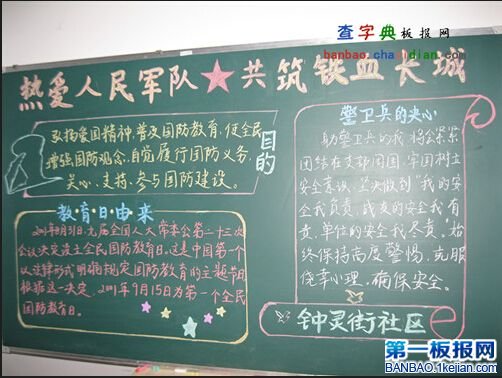 查字典板报网
banbao.chaZidian.com
热爱人民军队★共筑铁血长城
弘扬爱国精神,普及国防教育,使全民
增强国防观念,自觉履行国防义务,
关心、支持、参与国防建设。
目的
教育日由来
2001年8月31日,九届全国人大常委会第二十三次
会议决定设立全民国防教育日。这是中国第一个
以法律形式明确规定国防教育的主题节日
根据这一决定,2001年9月15日为第一个全民
国防教育日。
警卫兵的决心
身为警卫兵的我,将会紧紧
团结在支部周围,牢固树立
安全意识,坚决做到"我的安
全我负责,战友的安全我有
责,单位的安全我尽责。始
终保持高度警惕,克服
侥幸心理,确保安全。
钟灵街社区
第一板报网
BANBAO.1kejian.com